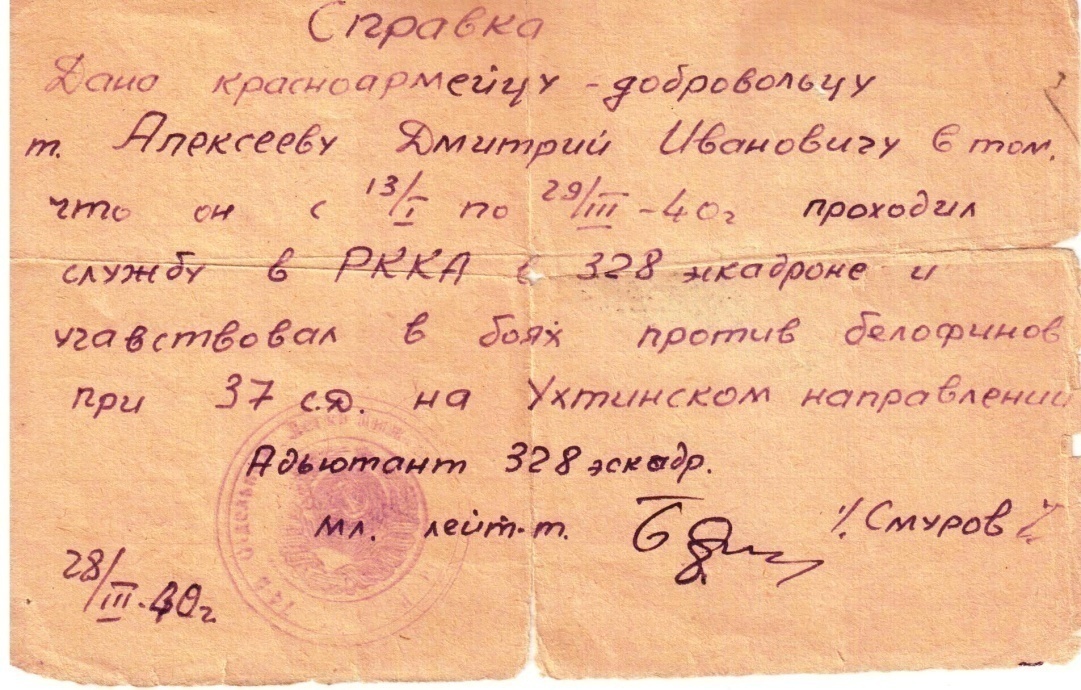 Справка
Дано красноармейцу - добровольцу
т. Алексееву Дмитрий Ивановичу в том,
что он с 13/I по 29/III - 40г проходил
службу в РККА в 328 экадроне и
учавствовал в боях против белофинов
при 37 с.д. на Ухтинском направлении
Адьютант 328 эскадр.
мл. лейт-т. /Смуров/
28/III-40г.